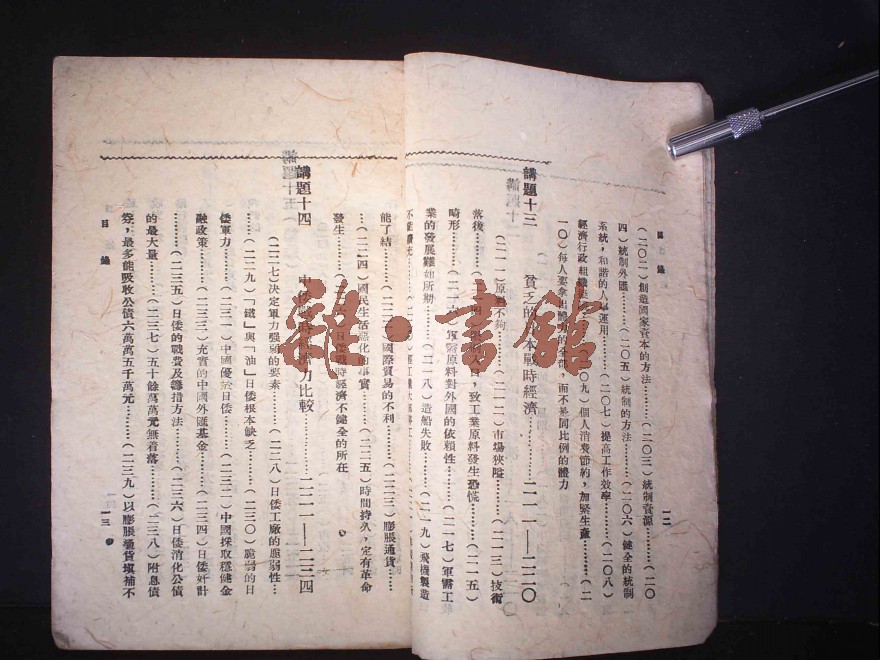 目錄
一二
（二〇二）創造國家資本的方法………（二〇三）統制資源………（二〇
四）統制外匯………（二〇五）統制的方法………（二〇六）健全的統制
系統，和諧的人事運用………（二〇七）提高工作效率………（二〇八）
經濟行政組織〇九）個人消費節約，加緊生產………（二
一〇）每人要拿出體力的全部，而不是同比例的體力
講題十三　貧乏的本戰時經濟………二一一——二二〇
（二一一）原料不夠………（二一二）市場狹隘………（二一三）技術
落後………，致工業原料發生恐慌………（二一五）
畸形………軍需原料對外國的依賴性………（二一七）軍需工
業的發展難如所期………（二一八）造船失敗………（二一九）飛機製造
能了結………國際貿易的不利………（二二三）膨脹通貨……
…（二二四）國民生活惡化的事實………（二二五）時間持久，定有革命
發生………日倭戰時經濟不健全的所在
講題十四　中倭戰時經濟力比較………二二一——二三四
（二二七）決定軍力强弱的要素………（二二八）日倭工廠的脆弱性…
……（二二九）「鐵」與「油」日倭根本缺乏………（二三〇）脆弱的日
倭軍力………（二三一）中國優於日倭………（二三二）中國採取穩健金
融政策………（二三三）充實的中國外匯基金………（二三四）日倭奸計
………（二三五）日倭的戰費及籌措方法………（二三六）日倭消化公債
的最大量………（二三七）五十餘萬萬元無着落………（二三八）附息債
券，最多能吸收公債六萬萬五千萬元………（二三九）以膨脹通貨塡補不
目錄
一三
雜·書館